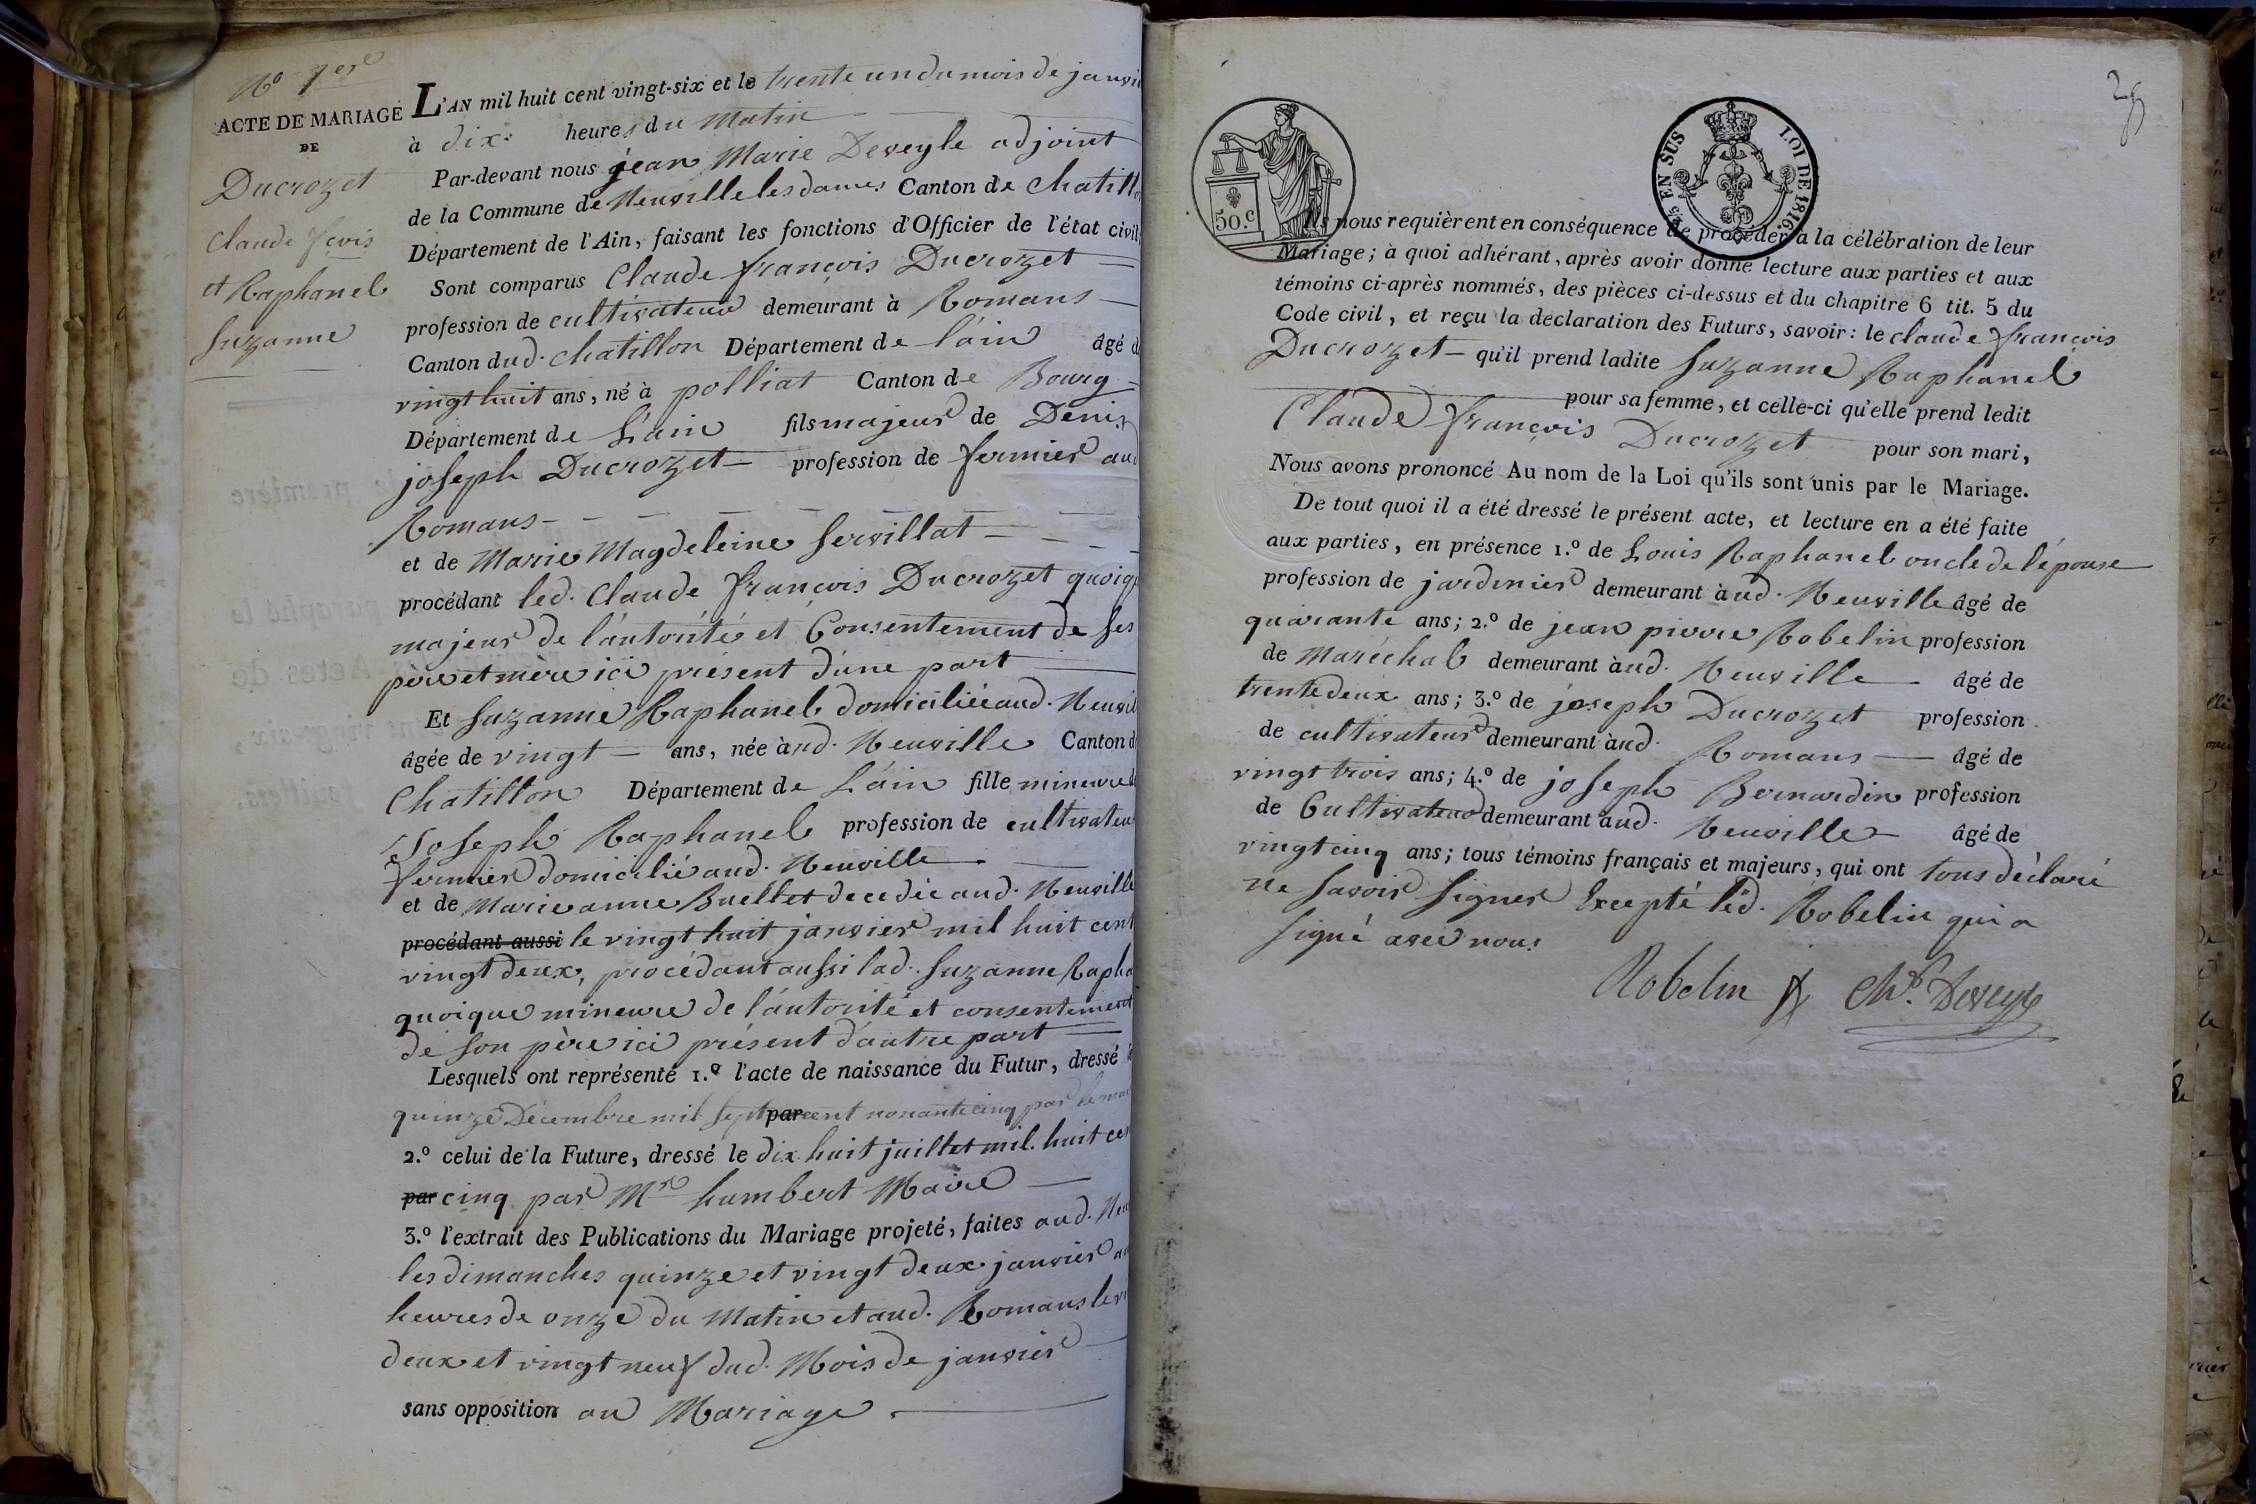 N° 1er
ACTE DE MARIAGE
DE
Ducrozet
Claude
et Raphanel
Suzanne
L'AN mil huit cent vingt-six et le trente un du mois de janvi
à dix heures du Matin
Par-devant nous jean Marie Deveyle adjoint
de la Commune de Neuville les dames Canton de Chatill
Département de l'Ain, faisant les fonctions d'Officier de l'état civil
Sont comparus Claude françois Ducrozet
profession de cultivateur demeurant à Romans
Canton dud. chatillon Département de l'ain âgé d
vingt huit ans, né à polliat Canton de Bourg
Département de L'ain fils majeur de Denis
joseph Ducrozet profession de fermier aud
Romans
et de Marie Magdeleine Servillat
procédant led. Claude françois Ducrozet quoiqu
majeur de l'autorité et Consentement de ses
père et mère ici présent d'une part
Et Suzanne Raphanel domiciliée aud. Neuvil
âgée de vingt ans, née àud. Neuville Canton d
Chatillon Département de L'ain fille mineure d
Joseph Raphanel profession de cultivateu
fermier domicilié aud. Neuville
et de Marie anne Buellet decedée aud. Neuville
procédant aussi le vingt huit janvier mil huit cent
vingt deux, procédant aussi lad. Suzanne Rapha
quoique mineure de l'autorité et consentement
de son père ici présent d'autre part
Lesquels ont représenté 1.º l'acte de naissance du Futur, dressé le
quinze Décembre mil sept par cent nonante cinq par le mai
2.º celui de la Future, dressé le dix huit juillet mil huit cen
par cinq par Mr humbert Maire
3.º l'extrait des Publications du Mariage projeté, faites aud. Neu
les dimanches quinze et vingt deux janvier au
heures de onze du Matin et aud. Romans le vi
deux et vingt neuf dud. Mois de janvier
sans opposition au Mariage
50.c
25 EN SUS LOI DE 1816.
Ils nous requièrent en conséquence de procéder à la célébration de leur
Mariage; à quoi adhérant, après avoir donné lecture aux parties et aux
témoins ci-après nommés, des pièces ci-dessus et du chapitre 6 tit. 5 du
Code civil, et reçu la déclaration des Futurs, savoir: le claude françois
Ducrozet qu'il prend ladite Suzanne Raphanel
pour sa femme, et celle-ci qu'elle prend ledit
Claude françois Ducrozet pour son mari,
Nous avons prononcé Au nom de la Loi qu'ils sont unis par le Mariage.
De tout quoi il a été dressé le présent acte, et lecture en a été faite
aux parties, en présence 1.º de Louis Raphanel oncle de l'épouse
profession de jardinier demeurant àud. Neuville âgé de
quarante ans; 2.º de jean pierre Robelin profession
de Maréchal demeurant àud. Neuville âgé de
trente deux ans; 3.º de joseph Ducrozet profession
de cultivateur demeurant àud. Romans âgé de
vingt trois ans; 4.º de joseph Bernardin profession
de Cultivateur demeurant àud. Neuville âgé de
vingt cinq ans; tous témoins français et majeurs, qui ont tous déclaré
ne savoir signer Excepté led. Robelin qui a
signé avec nous
Robelin Deveyle